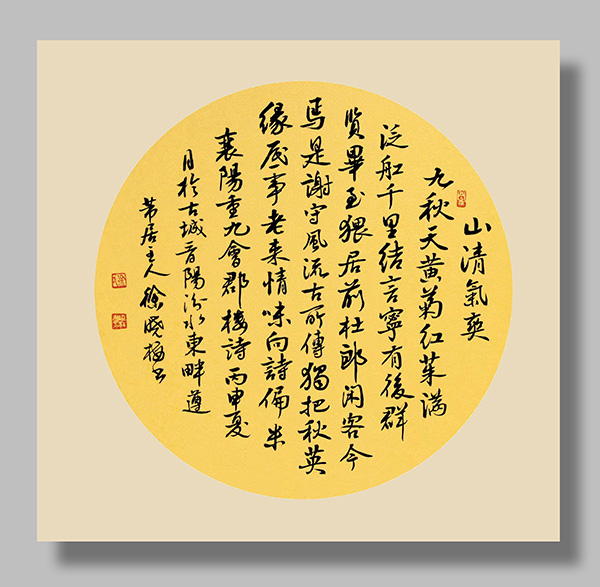 山清氣爽
九秋天黄菊红茱满
泛舡千里结言寧有後群
賢畢至猥居前杜郎闲客今
焉是謝守風流古所傳獨把秋英
緣底事老来情味向詩偏米
襄陽重九會郡楼詩丙申夏
月於古城晋陽汾水東畔遵
芾居主人徐晓梅书